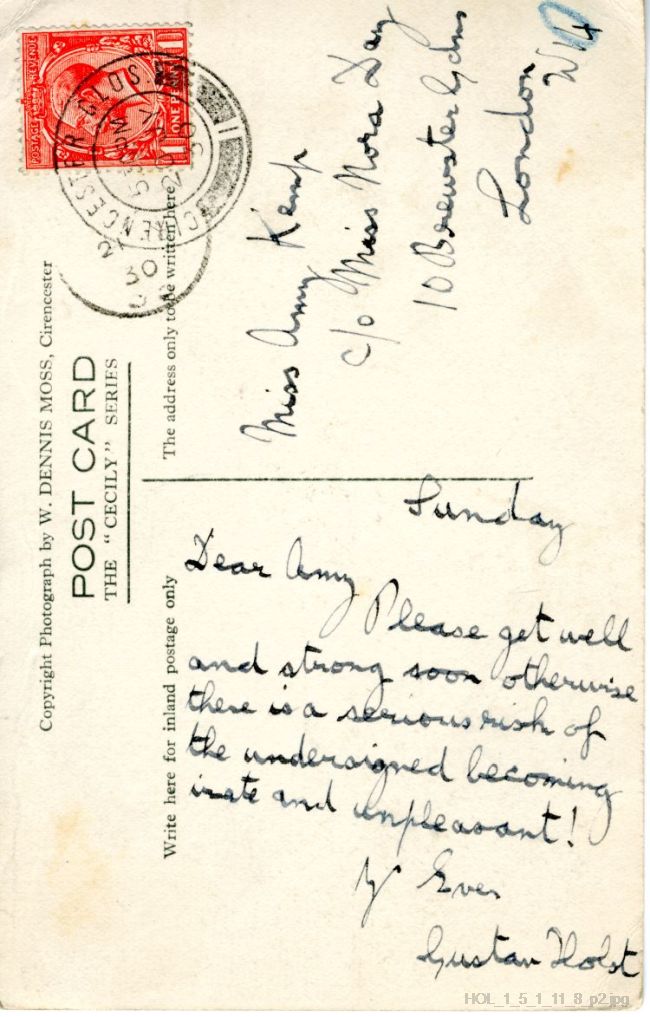 Copyright Photograph by W. DENNIS MOSS, Cirencester
POST CARD
THE "CECILY" SERIES
Write here for inland postage only
The address only to be written here
POSTAGE REVENUE
ONE PENNY
CIRENCESTER GLOS
30
Miss Amy Kemp
c/o Miss Nora Day
10 Brewster Gdns
London
Sunday
Dear Amy
Please get well
and strong soon otherwise
there is a serious risk of
the undersigned becoming
irate and unpleasant!
Yr Ever
Gustav Holst
HOL_1_5_1_11_8_p2.jpg